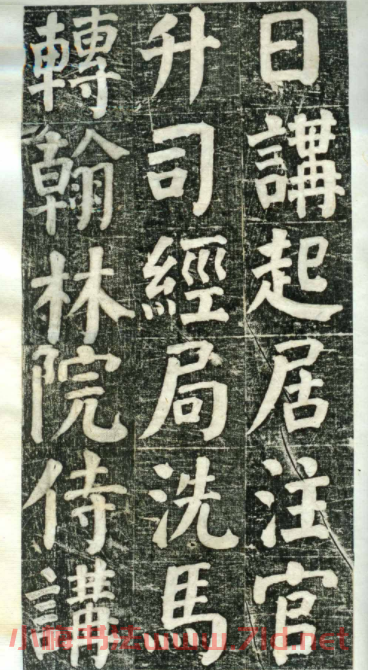 日講起居注官
升司經局洗馬
轉翰林院侍講
小楷书法www.7ld.net